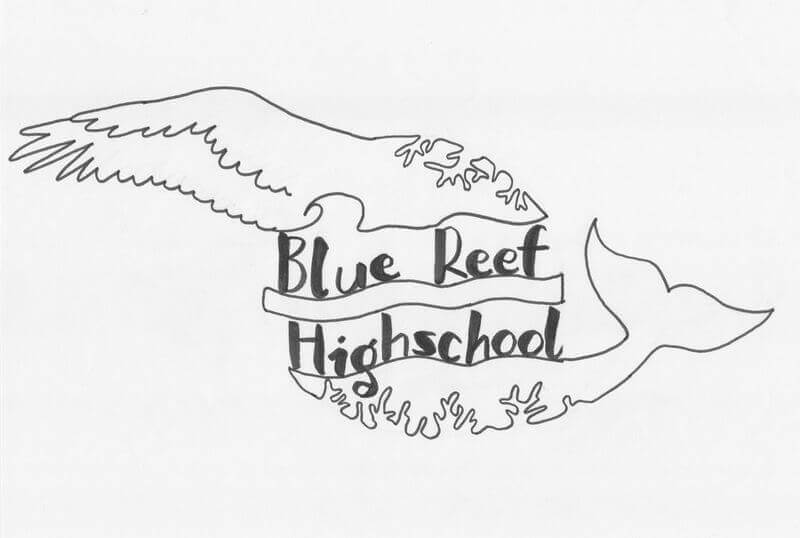 Blue Reef
Highschool